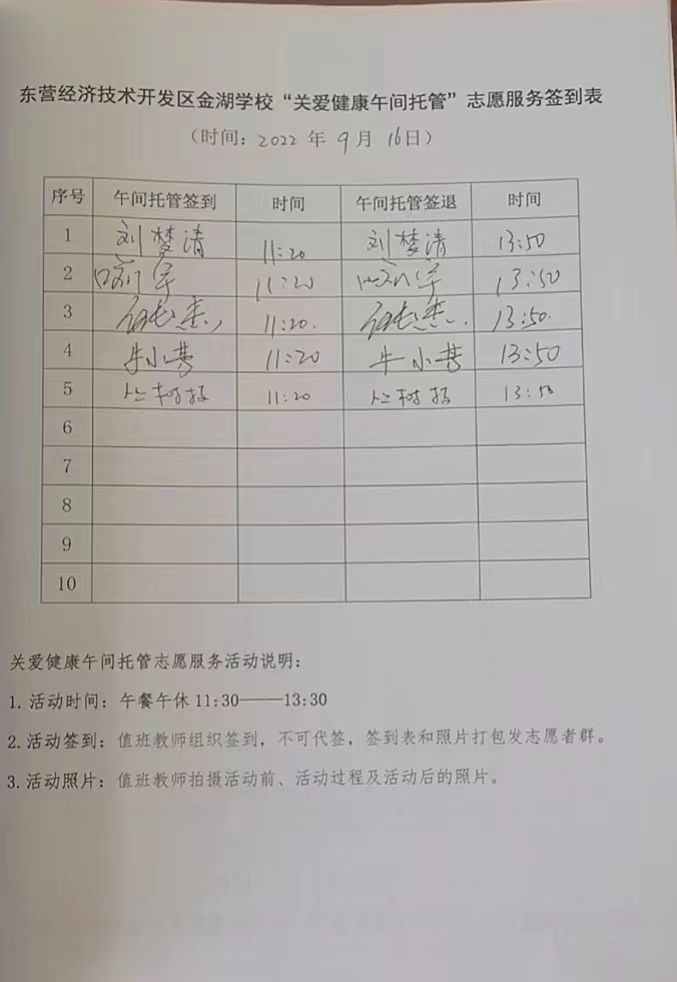 东营经济技术开发区金湖学校“关爱健康午间托管”志愿服务签到表
（时间：2022 年 9月 16日）
序号 午间托管签到 时间 午间托管签退 时间
1 刘梦清 11:20 刘梦清 13:50
2 11:20 13:50
3 11:20. 13:50.
4 牛小营 11:20 牛小营 13:50
5 丛树 11:20 丛树 13:50
6
7
8
9
10
关爱健康午间托管志愿服务活动说明：
1.活动时间：午餐午休 11:30——13:30
2.活动签到：值班教师组织签到，不可代签，签到表和照片打包发志愿者群。
3.活动照片：值班教师拍摄活动前、活动过程及活动后的照片。